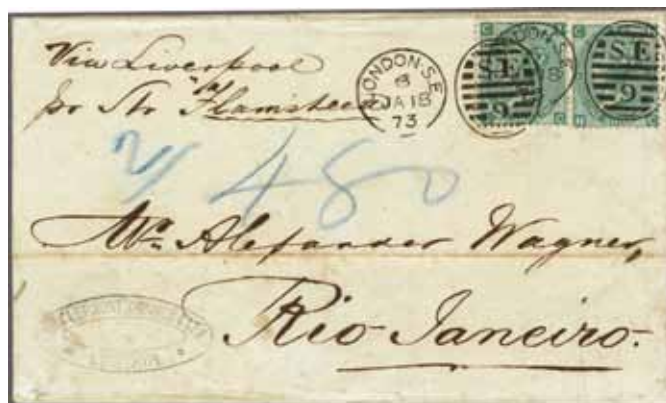 Via Liverpool
pr Str "Flamsteed"
LONDON·S.E
8
JA 18
73
S.E.
9
S.E.
9
2/ 480
Mr. Alexander Wagner,
Rio Janeiro.
LONDON